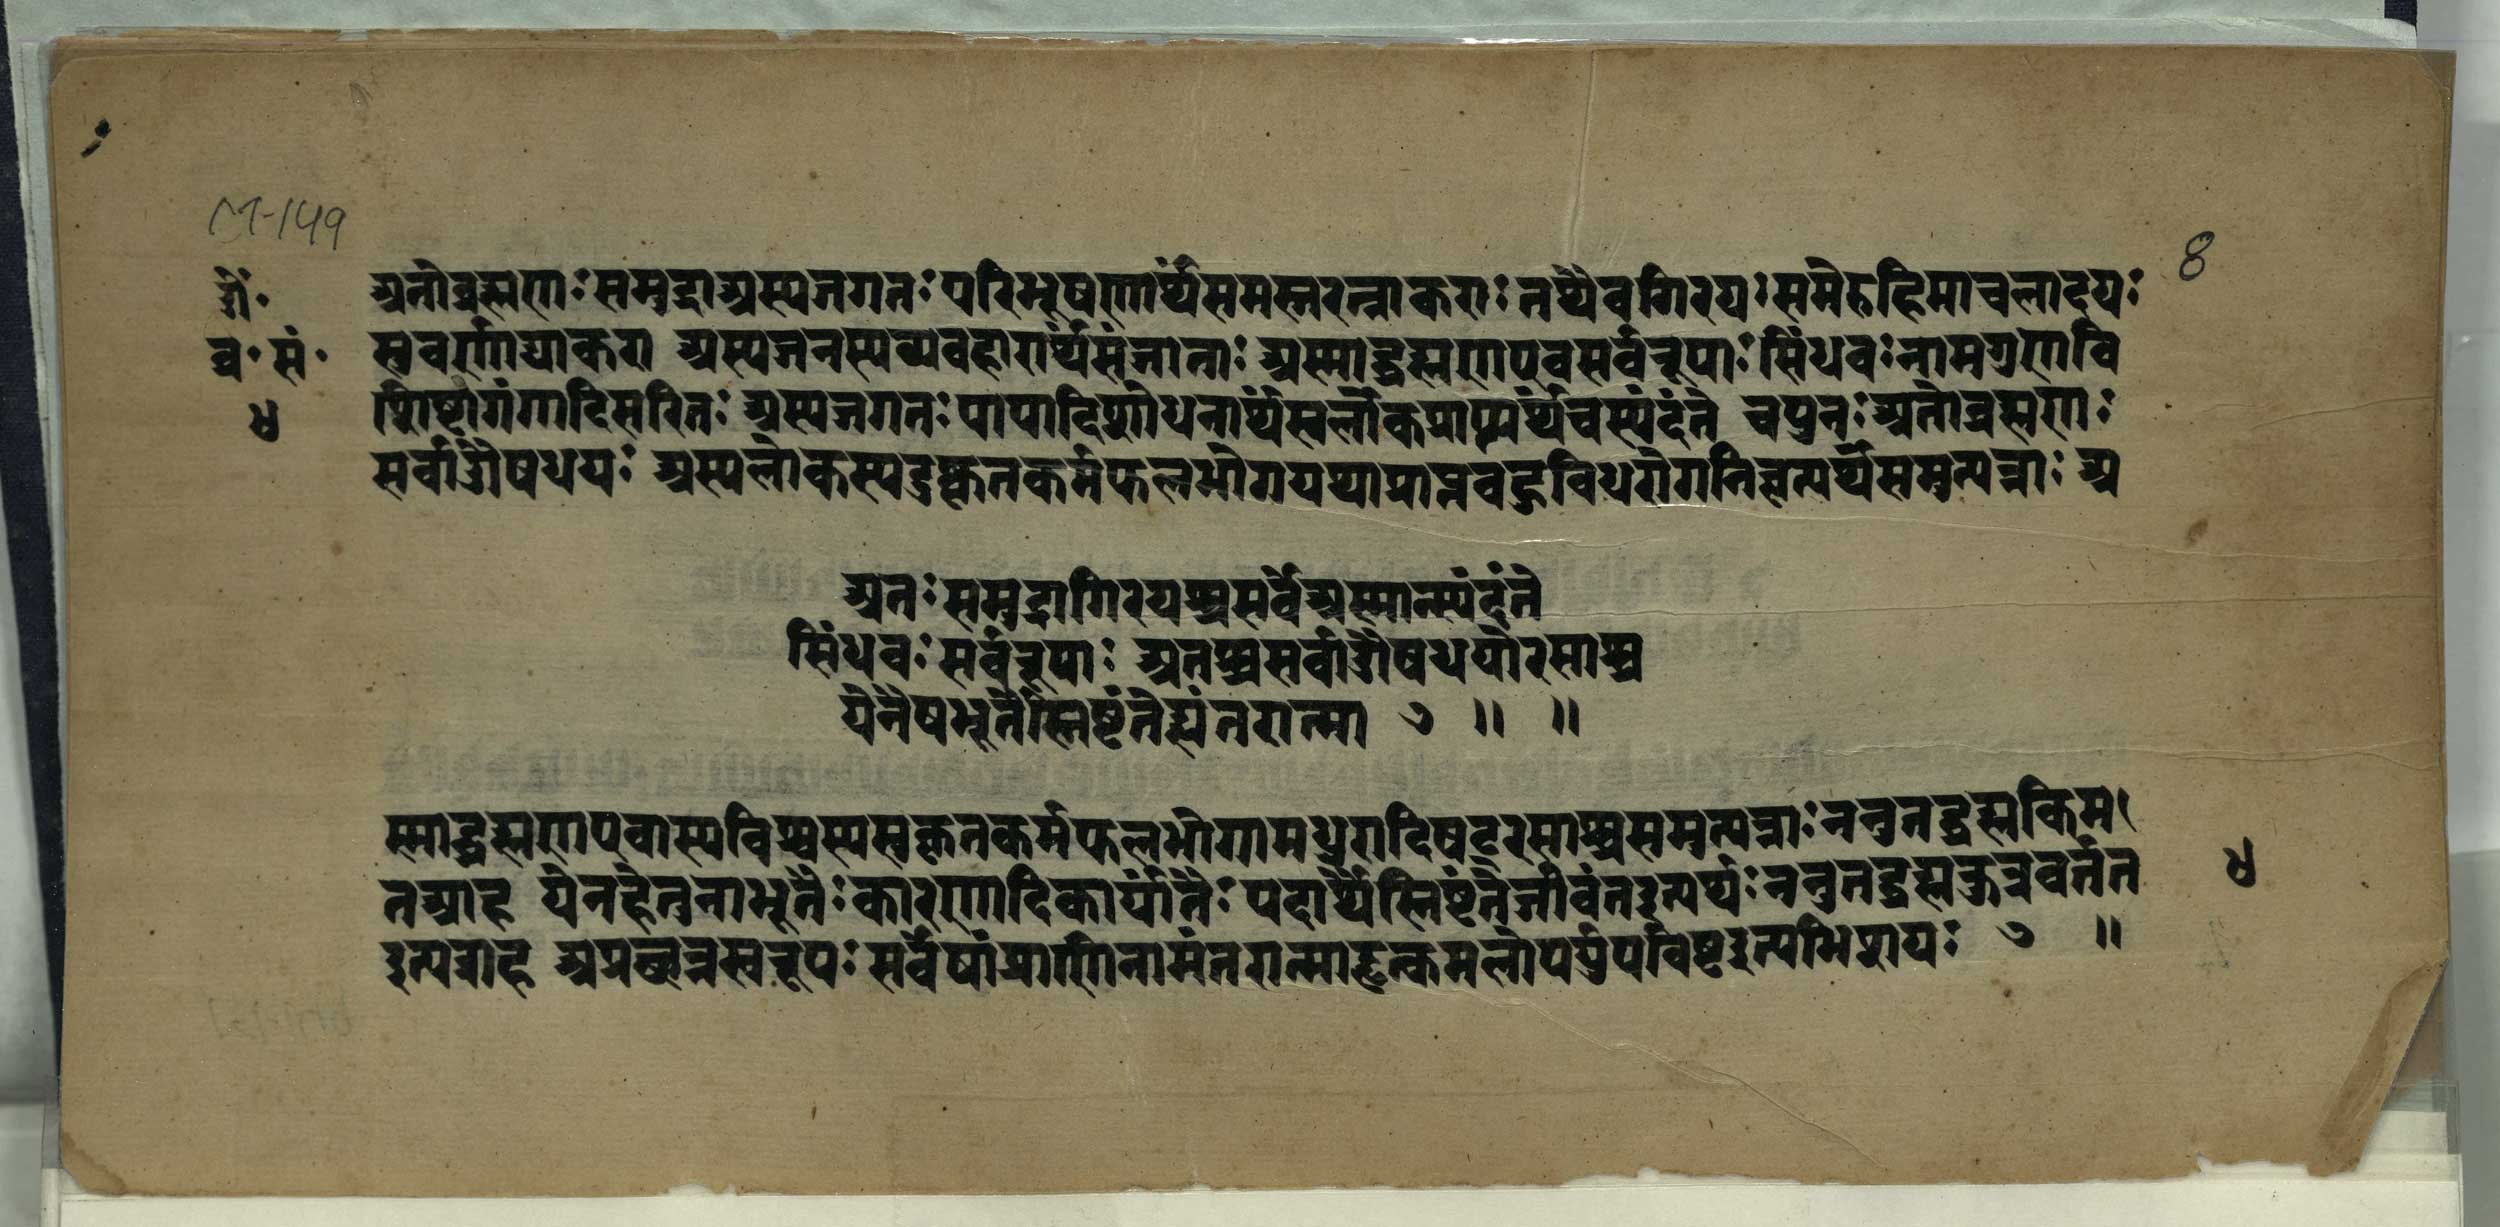 M-149
8
ओं॰
ब्र॰ सं॰
४
अतोब्रह्मणः समुद्राअस्यजगतः परिभूषणार्थंसमस्तरत्नाकराः तथैवगिरयः समेरुहिमाचलादयः
सुवर्णाद्याकरा अस्यजनस्यव्यवहारार्थंसंजाताः अस्माद्ब्रह्मणएवसर्वरूपाः सिंधवः नामगुणवि
शिष्टागंगादिसरितः अस्यजगतः पापादिशोधनार्थंस्वर्लोकप्राप्त्यर्थंचस्यंदंते चपुनः अतोब्रह्मणः
सर्वाओषधयः अस्यलोकस्यदुष्कृतकर्मफलभोगायथाप्राप्तबहुविधरोगनिवृत्यर्थंसमुत्पन्नाः अ
अतः समुद्रागिरयश्चसर्वेअस्मात्स्यंदंते
सिंधवः सर्वरूपाः अतश्चसर्वाओषधयोरसाश्च
येनैषभूतैस्तिष्टंतेह्यंतरात्मा ७ ॥ ॥
स्माद्ब्रह्मणएवास्यविश्वस्यसुकृतकर्मफलभोगामधुरादिषट्रसाश्चसमुत्पन्नाः ननुतद्ब्रह्मकिम
तआह येनहेतुनाभूतैः कारणादिकार्यांतैः पदार्थैस्तिष्टंतेजीवंतइत्यर्थः ननुतद्ब्रह्मकुत्रवर्तत
इत्यत्राह अप्रच्छन्नस्वरूपः सर्वेषांप्राणिनामंतरात्माहृत्कमलोपर्युपविष्टइत्यभिप्रायः ७ ॥
४